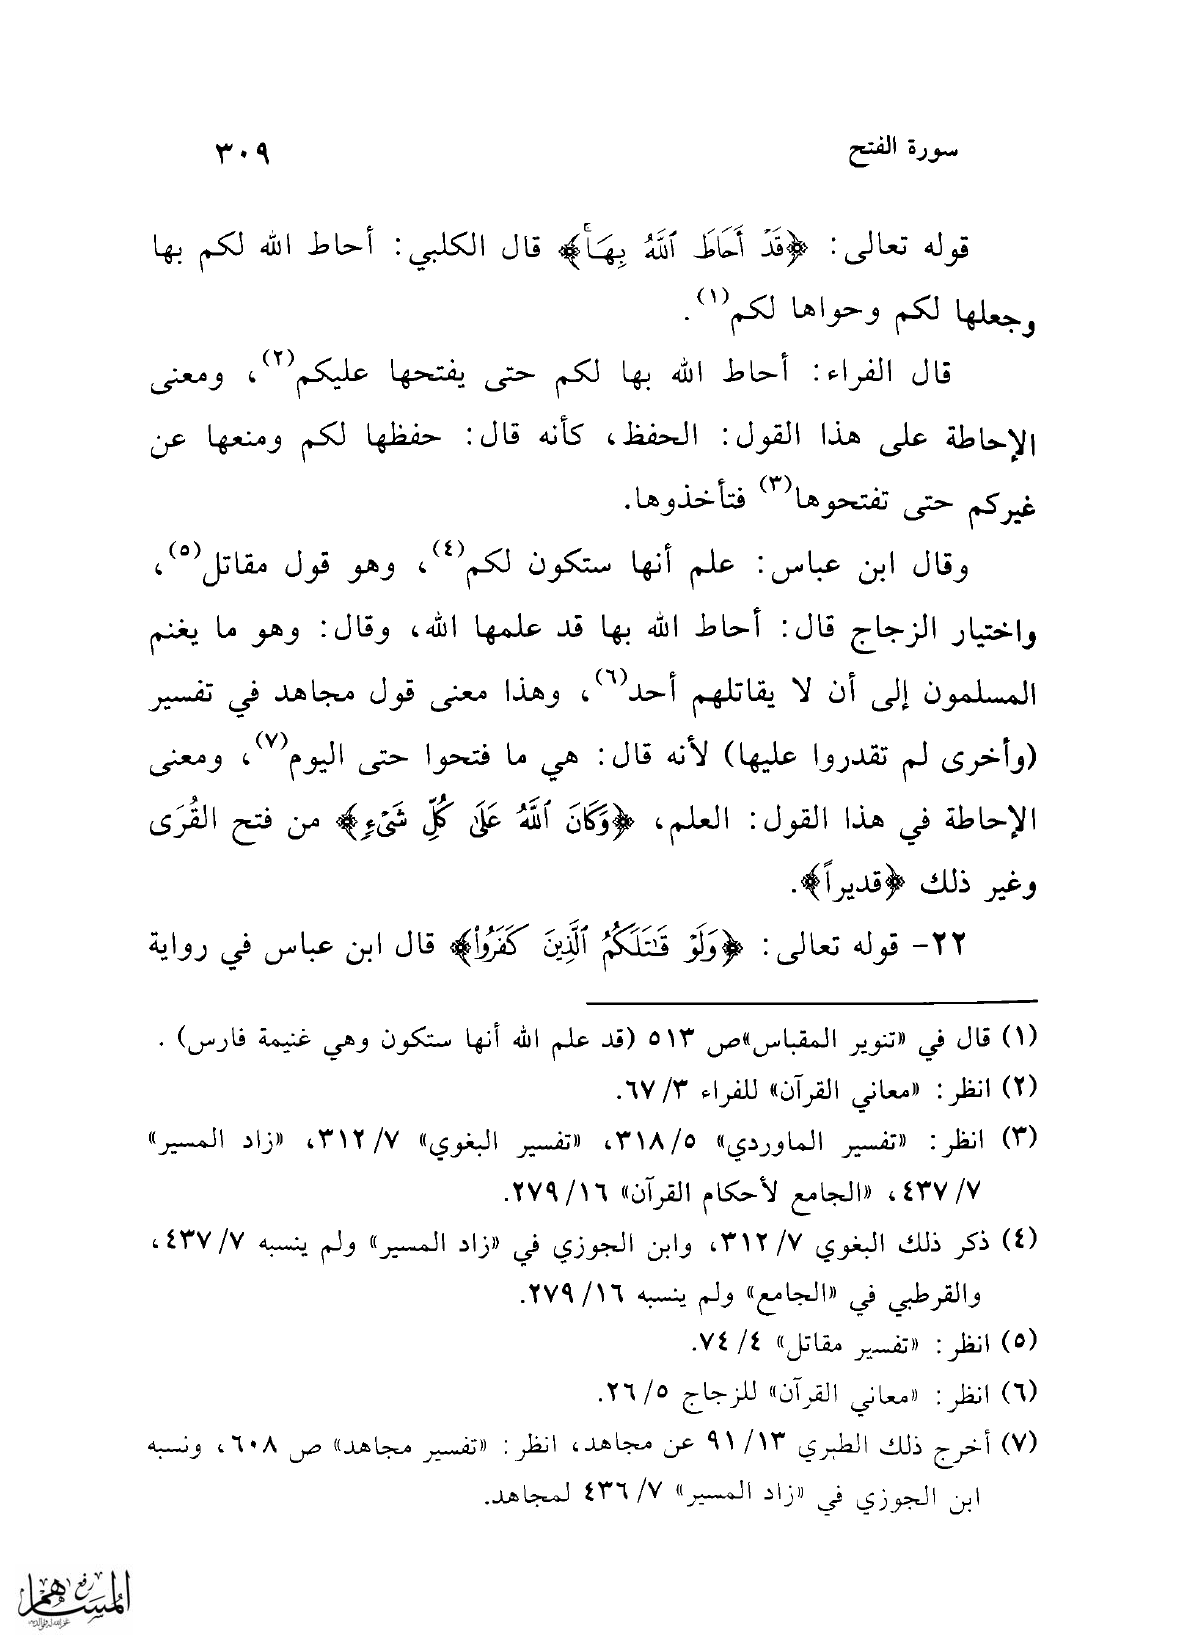 سورة الفتح ٣٠٩
قوله تعالى: ﴿قَدْ أَحَاطَ ٱللَّهُ بِهَاۚ﴾ قال الكلبي: أحاط الله لكم بها
وجعلها لكم وحواها لكم(١).
قال الفراء: أحاط الله بها لكم حتى يفتحها عليكم(٢)، ومعنى
الإحاطة على هذا القول: الحفظ، كأنه قال: حفظها لكم ومنعها عن
غيركم حتى تفتحوها(٣) فتأخذوها.
وقال ابن عباس: علم أنها ستكون لكم(٤)، وهو قول مقاتل(٥)،
واختيار الزجاج قال: أحاط الله بها قد علمها الله، وقال: وهو ما يغنم
المسلمون إلى أن لا يقاتلهم أحد(٦)، وهذا معنى قول مجاهد في تفسير
(وأخرى لم تقدروا عليها) لأنه قال: هي ما فتحوا حتى اليوم(٧)، ومعنى
الإحاطة في هذا القول: العلم، ﴿وَكَانَ ٱللَّهُ عَلَىٰ كُلِّ شَىْءٍ﴾ من فتح القُرَى
وغير ذلك ﴿قديراً﴾.
٢٢- قوله تعالى: ﴿وَلَوْ قَٰتَلَكُمُ ٱلَّذِينَ كَفَرُوا۟﴾ قال ابن عباس في رواية
(١) قال في «تنوير المقباس»ص ٥١٣ (قد علم الله أنها ستكون وهي غنيمة فارس) .
(٢) انظر: «معاني القرآن» للفراء ٣/ ٦٧.
(٣) انظر: «تفسير الماوردي» ٥/ ٣١٨، «تفسير البغوي» ٧/ ٣١٢، «زاد المسير»
٧/ ٤٣٧، «الجامع لأحكام القرآن» ١٦/ ٢٧٩.
(٤) ذكر ذلك البغوي ٧/ ٣١٢، وابن الجوزي في «زاد المسير» ولم ينسبه ٧/ ٤٣٧،
والقرطبي في «الجامع» ولم ينسبه ١٦/ ٢٧٩.
(٥) انظر: «تفسير مقاتل» ٤/ ٧٤.
(٦) انظر: «معاني القرآن» للزجاج ٥/ ٢٦.
(٧) أخرج ذلك الطبري ١٣/ ٩١ عن مجاهد، انظر: «تفسير مجاهد» ص ٦٠٨، ونسبه
ابن الجوزي في «زاد المسير» ٧/ ٤٣٦ لمجاهد.